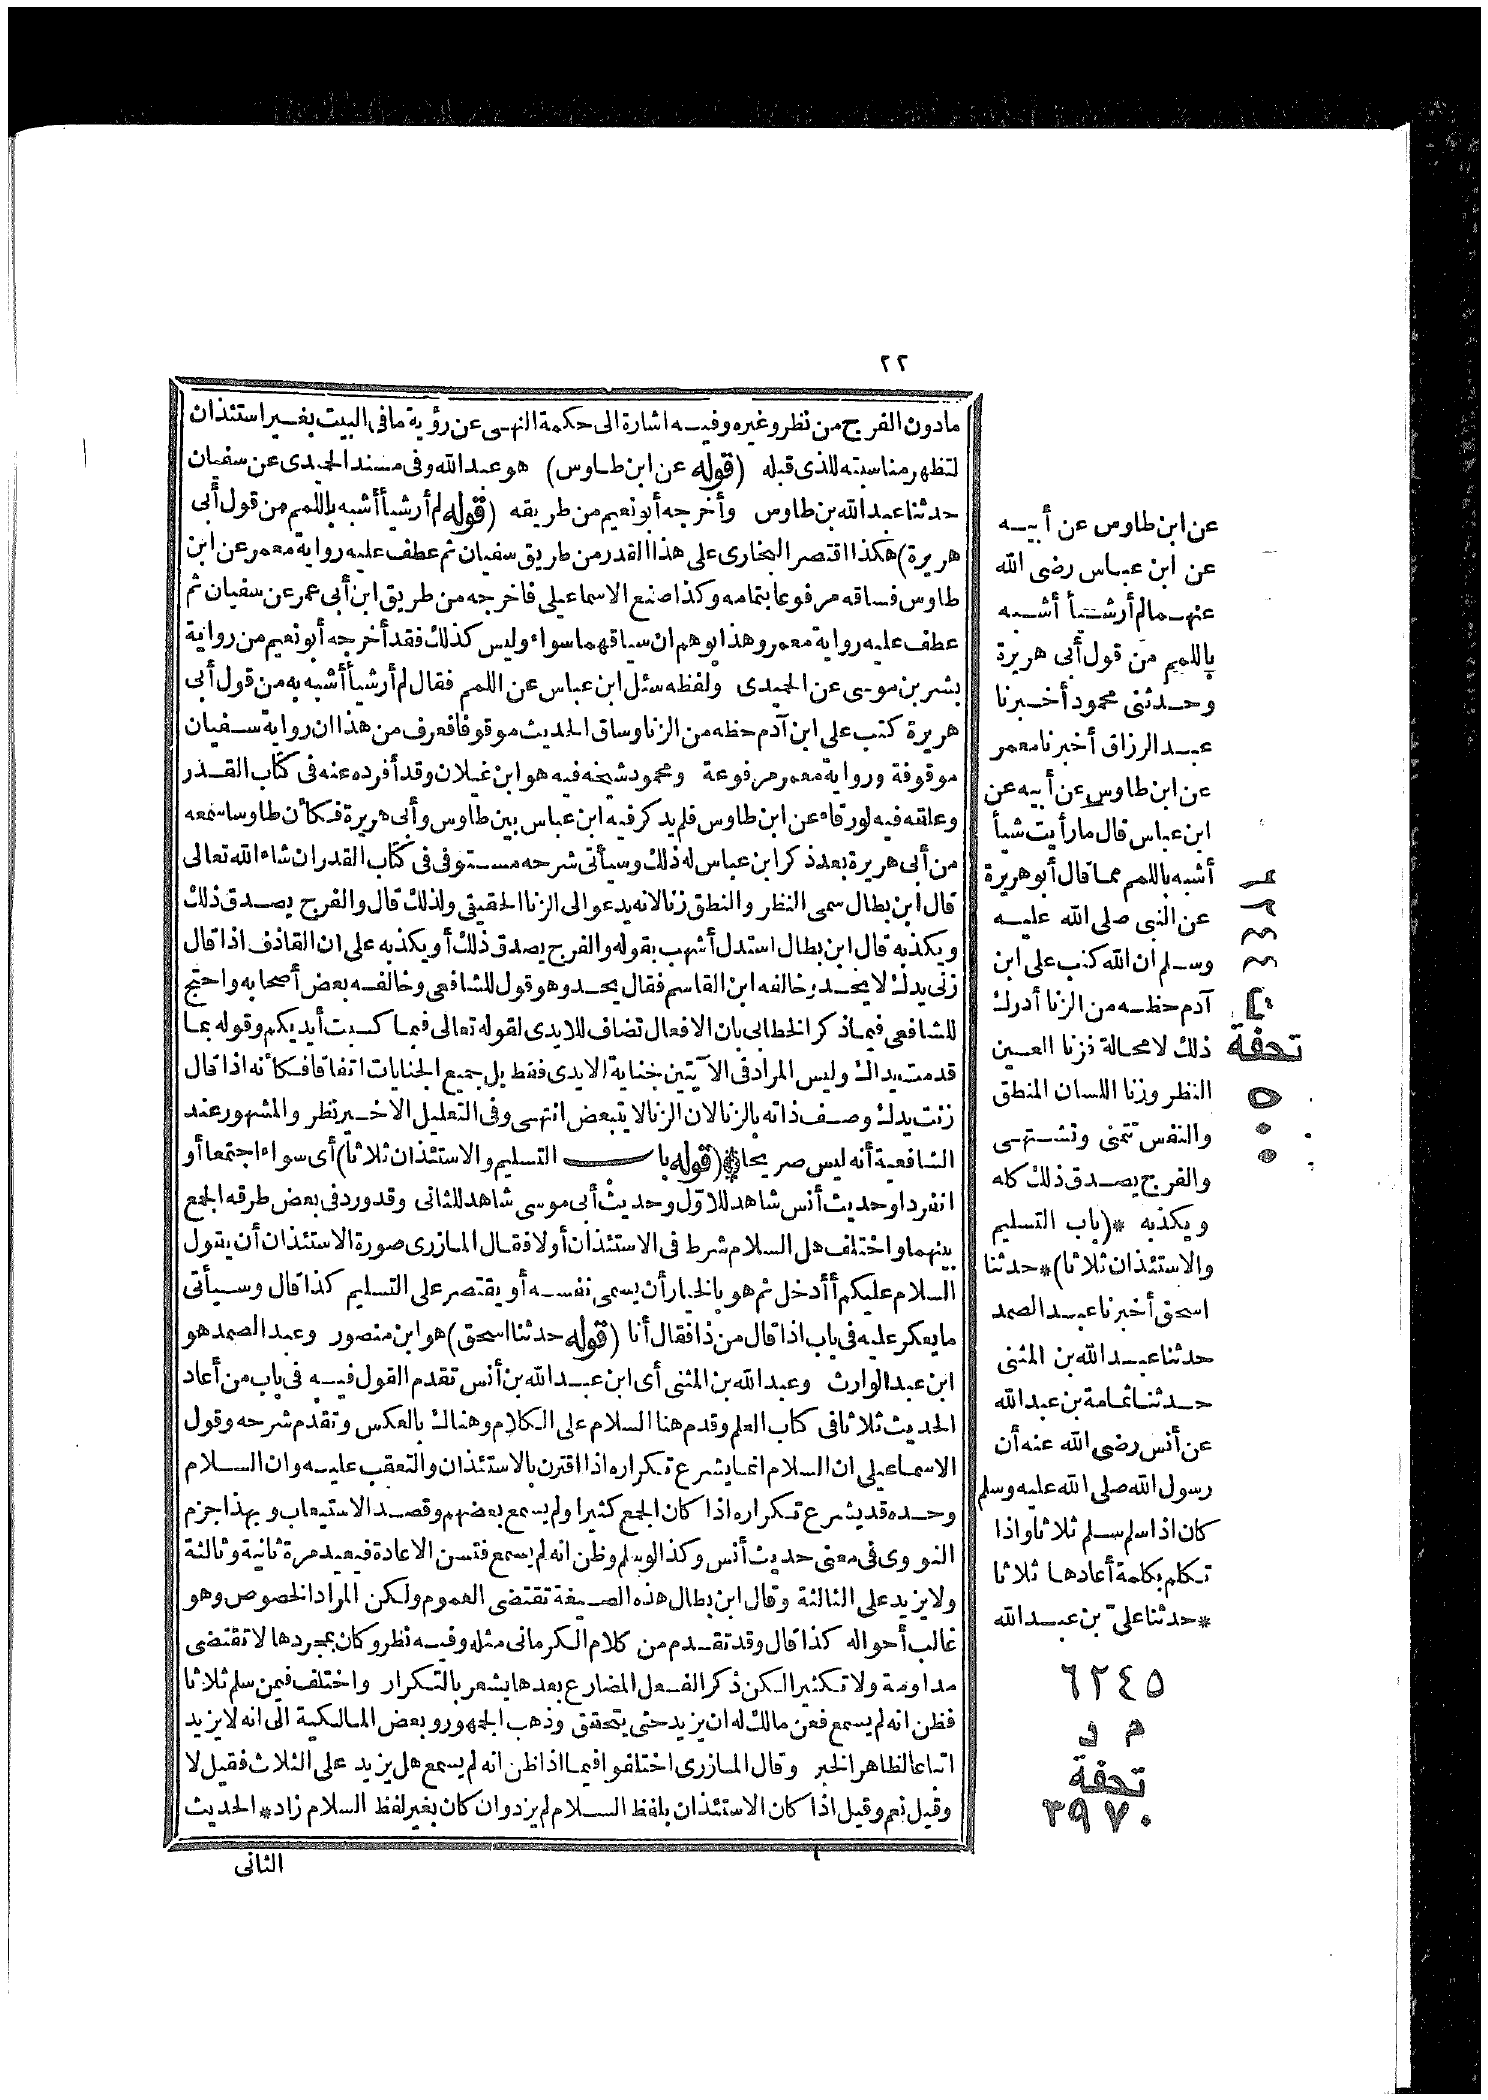 ٢٢
مادون الفرج من نظر وغيره وفيه اشارة الى حكمة النهى عن رؤية ما فى البيت بغير استئذان
لتظهر مناسبته للذى قبله (قوله عن ابن طاوس) هو عبد الله وفى مسند الحميدى عن سفيان
حدثنا عبد الله بن طاوس وأخرجه أبو نعيم من طريقه (قوله لم أر شيأ أشبه باللمم من قول أبى
هريرة) هكذا اقتصر البخارى على هذا القدر من طريق سفيان ثم عطف عليه رواية معمر عن ابن
طاوس فساقه مرفوعا بتمامه وكذا صنع الاسماعيلى فاخرجه من طريق ابن أبى عمر عن سفيان ثم
عطف عليه رواية معمر وهذا يوهم ان سياقهما سواء وليس كذلك فقد أخرجه أبو نعيم من رواية
بشر بن موسى عن الحميدى ولفظه سئل ابن عباس عن اللمم فقال لم أر شيأ أشبه به من قول أبى
هريرة كتب على ابن آدم حظه من الزنا وساق الحديث موقوفا فعرف من هذا ان رواية سفيان
موقوفة ورواية معمر مرفوعة ومحمود شيخه فيه هو ابن غيلان وقد أفرده عنه فى كتاب القدر
وعلقه فيه لورقاء عن ابن طاوس فلم يذكر فيه ابن عباس بين طاوس وأبى هريرة فكأن طاوسا سمعه
من أبى هريرة بعد ذكر ابن عباس له ذلك وسيأتى شرحه مستوفى فى كتاب القدر ان شاء الله تعالى
قال ابن بطال سمى النظر والنطق زنا لانه يدعو الى الزنا الحقيقى ولذلك قال والفرج يصدق ذلك
ويكذبه قال ابن بطال استدل أشهب بقوله والفرج يصدق ذلك أو يكذبه على ان القاذف اذا قال
زنى يدك لا يحد وخالفه ابن القاسم فقال يحد وهو قول للشافعى وخالفه بعض أصحابه واحتج
للشافعى فيما ذكر الخطابى بان الافعال تضاف للايدى لقوله تعالى فبما كسبت أيديكم وقوله بما
قدمت يداك وليس المراد فى الآيتين جناية الايدى فقط بل جميع الجنايات اتفاقا فكأنه اذا قال
زنت يدك وصف ذاته بالزنا لان الزنا لا يتبعض انتهى وفى التعليل الاخير نظر والمشهور عند
الشافعية أنه ليس صريحا ❊ (قوله باب التسليم والاستئذان ثلاثا) أى سواء اجتمعا أو
انفردا وحديث أنس شاهد للاول وحديث أبى موسى شاهد للثانى وقد ورد فى بعض طرقه الجمع
بينهما واختلف هل السلام شرط فى الاستئذان أولا فقال المازرى صورة الاستئذان أن يقول
السلام عليكم أأدخل ثم هو بالخيار أن يسمى نفسه أو يقتصر على التسليم كذا قال وسيأتى
ما يعكر عليه فى باب اذا قال من ذا فقال أنا (قوله حدثنا اسحق) هو ابن منصور وعبد الصمد هو
ابن عبد الوارث وعبد الله بن المثنى أى ابن عبد الله بن أنس تقدم القول فيه فى باب من أعاد
الحديث ثلاثا فى كتاب العلم وقدم هنا السلام على الكلام وهناك بالعكس وتقدم شرحه وقول
الاسماعيلى ان السلام انما يشرع تكراره اذا اقترن بالاستئذان والتعقب عليه وان السلام
وحده قد يشرع تكراره اذا كان الجمع كثيرا ولم يسمع بعضهم وقصد الاستيعاب وبهذا جزم
النووى فى معنى حديث أنس وكذا لو سلم وظن انه لم يسمع فتسن الاعادة فيعيد مرة ثانية وثالثة
ولا يزيد على الثالثة وقال ابن بطال هذه الصيغة تقتضى العموم ولكن المراد الخصوص وهو
غالب أحواله كذا قال وقد تقدم من كلام الكرمانى مثله وفيه نظر وكان بمجردها لا تقتضى
مداومة ولا تكثيرا لكن ذكر الفعل المضارع بعدها يشعر بالتكرار واختلف فيمن سلم ثلاثا
فظن انه لم يسمع فعن مالك له ان يزيد حتى يتحقق وذهب الجمهور وبعض المالكية الى انه لا يزيد
اتباعا لظاهر الخبر وقال المازرى اختلفوا فيما اذا ظن انه لم يسمع هل يزيد على الثلاث فقيل لا
وقيل نعم وقيل اذا كان الاستئذان بلفظ السلام لم يزد وان كان بغير لفظ السلام زاد * الحديث
الثانى
عن ابن طاوس عن أبيه
عن ابن عباس رضى الله
عنهما لم أر شيأ أشبه
باللمم من قول أبى هريرة
وحدثنى محمود أخبرنا
عبد الرزاق أخبرنا معمر
عن ابن طاوس عن أبيه عن
ابن عباس قال ما رأيت شيأ
أشبه باللمم مما قال أبو هريرة
عن النبى صلى الله عليه
وسلم ان الله كتب على ابن
آدم حظه من الزنا أدرك
ذلك لا محالة فزنا العين
النظر وزنا اللسان المنطق
والنفس تتمنى وتشتهى
والفرج يصدق ذلك كله
ويكذبه *(باب التسليم
والاستئذان ثلاثا)* حدثنا
اسحق أخبرنا عبد الصمد
حدثنا عبد الله بن المثنى
حدثنا ثمامة بن عبد الله
عن أنس رضى الله عنه أن
رسول الله صلى الله عليه وسلم
كان اذا سلم سلم ثلاثا واذا
تكلم بكلمة أعادها ثلاثا
* حدثنا على بن عبد الله
٦٢٤٥
م د
تحفة
٣٩٧٠
تحفة